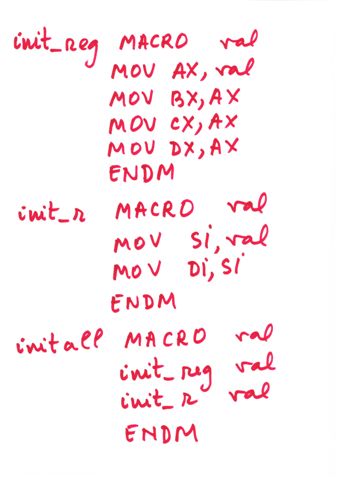 init_reg MACRO val
MOV AX, val
MOV BX, AX
MOV CX, AX
MOV DX, AX
ENDM
init_r MACRO val
MOV Si, val
MOV Di, Si
ENDM
initall MACRO val
init_reg val
init_r val
ENDM